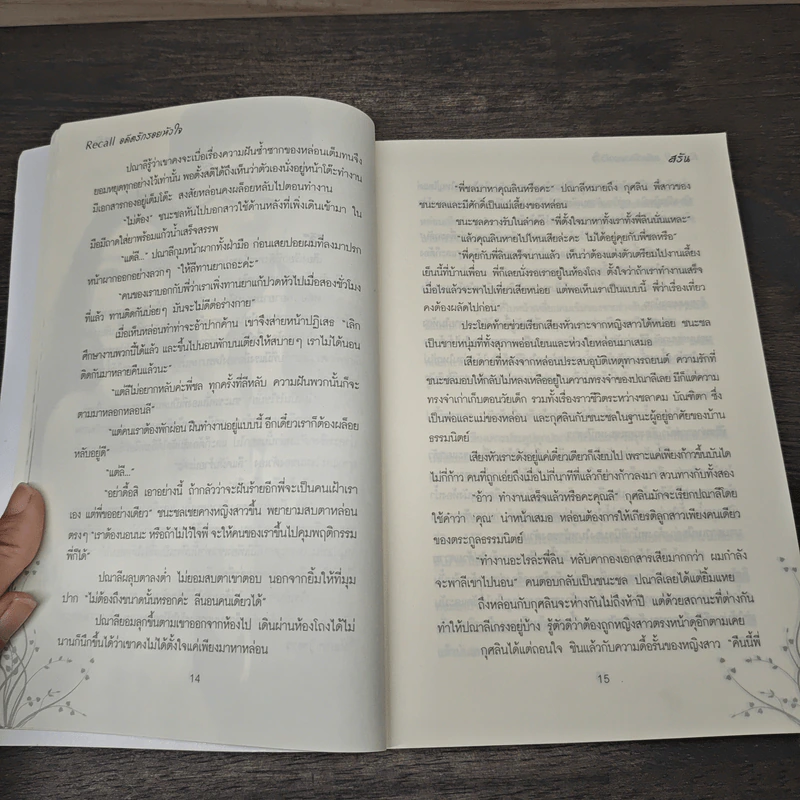 Recall อดีตรักรอยหัวใจ
ปณาลีรู้ว่าเขาคงจะเบื่อเรื่องความฝันซ้ำซากของหล่อนเต็มทนจึง
ยอมหยุดทุกอย่างไว้เท่านั้น พอตั้งสติได้ถึงเห็นว่าตัวเองนั่งอยู่หน้าโต๊ะทำงาน
มีเอกสารกองอยู่เต็มโต๊ะ สงสัยหล่อนคงผล็อยหลับไปตอนทำงาน
"ไม่ต้อง" ชนะชลหันไปบอกสาวใช้ด้านหลังที่เพิ่งเดินเข้ามา ใน
มือมีถาดใส่ยาพร้อมแก้วน้ำเสร็จสรรพ
"แต่ลี..." ปณาลีกุมหน้าผากทั้งฝ่ามือ ก่อนเสยปอยผมที่ลงมาปรก
หน้าผากออกอย่างลวกๆ "ให้ลีทานยาเถอะค่ะ"
"คนของเราบอกกับพี่ว่าเราเพิ่งทานยาแก้ปวดหัวไปเมื่อสองชั่วโมง
ที่แล้ว ทานติดกันบ่อยๆ มันจะไม่ดีต่อร่างกาย"
เมื่อเห็นหล่อนทำท่าจะอ้าปากค้าน เขาจึงส่ายหน้าปฏิเสธ "เลิก
ศึกษางานพวกนี้ได้แล้ว และขึ้นไปนอนพักบนเตียงให้สบายๆ เราไม่ได้นอน
ติดกันมาหลายคืนแล้วนะ"
"แต่ลีไม่อยากหลับค่ะพี่ชล ทุกครั้งที่ลีหลับ ความฝันพวกนั้นก็จะ
ตามมาหลอกหลอนลี"
"แต่คนเราต้องพักผ่อน ฝืนทำงานอยู่แบบนี้ อีกเดี๋ยวเราก็ต้องผล็อย
หลับอยู่ดี"
"แต่ลี..."
"อย่าดื้อสิ เอาอย่างนี้ ถ้ากลัวว่าจะฝันร้ายอีกพี่จะเป็นคนเฝ้าเรา
เอง แต่พี่ขออย่างเดียว" ชนะชลเชยคางหญิงสาวขึ้น พยายามสบตาหล่อน
ตรงๆ "เราต้องนอนนะ หรือถ้าไม่ไว้ใจพี่ จะให้คนของเราขึ้นไปคุมพฤติกรรม
พี่ก็ได้"
ปณาลีผลุบตาลงต่ำ ไม่ยอมสบตาเขาตอบ นอกจากยิ้มให้ที่มุม
ปาก "ไม่ต้องถึงขนาดนั้นหรอกค่ะ ลีนอนคนเดียวได้"
ปณาลียอมลุกขึ้นตามเขาออกจากห้องไป เดินผ่านห้องโถงได้ไม่
นานก็นึกขึ้นได้ว่าเขาคงไม่ได้ตั้งใจแค่เพียงมาหาหล่อน
14
สรัน
"พี่ชลมาหาคุณลินหรือคะ" ปณาลีหมายถึง กุศลิน พี่สาวของ
ชนะชลและมีศักดิ์เป็นแม่เลี้ยงของหล่อน
ชนะชลครางรับในลำคอ "พี่ตั้งใจมาหาทั้งเราทั้งพี่ลินนั่นแหละ"
"แล้วคุณลินหายไปไหนเสียล่ะคะ ไม่ได้อยู่คุยกับพี่ชลหรือ"
"พี่คุยกับพี่ลินเสร็จนานแล้ว เห็นว่าต้องแต่งตัวเตรียมไปงานเลี้ยง
เย็นนี้ที่บ้านเพื่อน พี่ก็เลยนั่งรอเราอยู่ในห้องโถง ตั้งใจว่าถ้าเราทำงานเสร็จ
เมื่อไรแล้วจะพาไปเที่ยวเสียหน่อย แต่พอเห็นเราเป็นแบบนี้ พี่ว่าเรื่องเที่ยว
คงต้องผลัดไปก่อน"
ประโยคท้ายช่วยเรียกเสียงหัวเราะจากหญิงสาวได้หน่อย ชนะชล
เป็นชายหนุ่มที่ทั้งสุภาพอ่อนโยนและห่วงใยหล่อนมาเสมอ
เสียดายที่หลังจากหล่อนประสบอุบัติเหตุทางรถยนต์ ความรักที่
ชนะชลมอบให้กลับไม่หลงเหลืออยู่ในความทรงจำของปณาลีเลย มีก็แต่ความ
ทรงจำเก่าเก็บตอนวัยเด็ก รวมทั้งเรื่องราวชีวิตระหว่างชลาคม บัณฑิตา ซึ่ง
เป็นพ่อและแม่ของหล่อน และกุศลินกับชนะชลในฐานะผู้อยู่อาศัยของบ้าน
ธรรมนิตย์
เสียงหัวเราะดังอยู่แค่เดี๋ยวเดียวก็เงียบไป เพราะแค่เพียงก้าวขึ้นบันได
ไม่กี่ก้าว คนที่ถูกเอ่ยถึงเมื่อไม่กี่นาทีที่แล้วก็ย่างก้าวลงมา สวนทางกับทั้งสอง
"อ้าว ทำงานเสร็จแล้วหรือคะคุณลี" กุศลินมักจะเรียกปณาลีโดย
ใช้คำว่า 'คุณ' นำหน้าเสมอ หล่อนต้องการให้เกียรติลูกสาวเพียงคนเดียว
ของตระกูลธรรมนิตย์
"ทำงานอะไรล่ะพี่ลิน หลับคากองเอกสารเสียมากกว่า ผมกำลัง
จะพาลีเขาไปนอน" คนตอบกลับเป็นชนะชล ปณาลีเลยได้แต่ยิ้มแหย
ถึงหล่อนกับกุศลินจะห่างกันไม่ถึงห้าปี แต่ด้วยสถานะที่ต่างกัน
ทำให้ปณาลีเกรงอยู่บ้าง รู้ตัวดีว่าต้องถูกหญิงสาวตรงหน้าดุอีกตามเคย
กุศลินได้แต่ถอนใจ ชินแล้วกับความดื้อรั้นของหญิงสาว "คืนนี้พี่
15